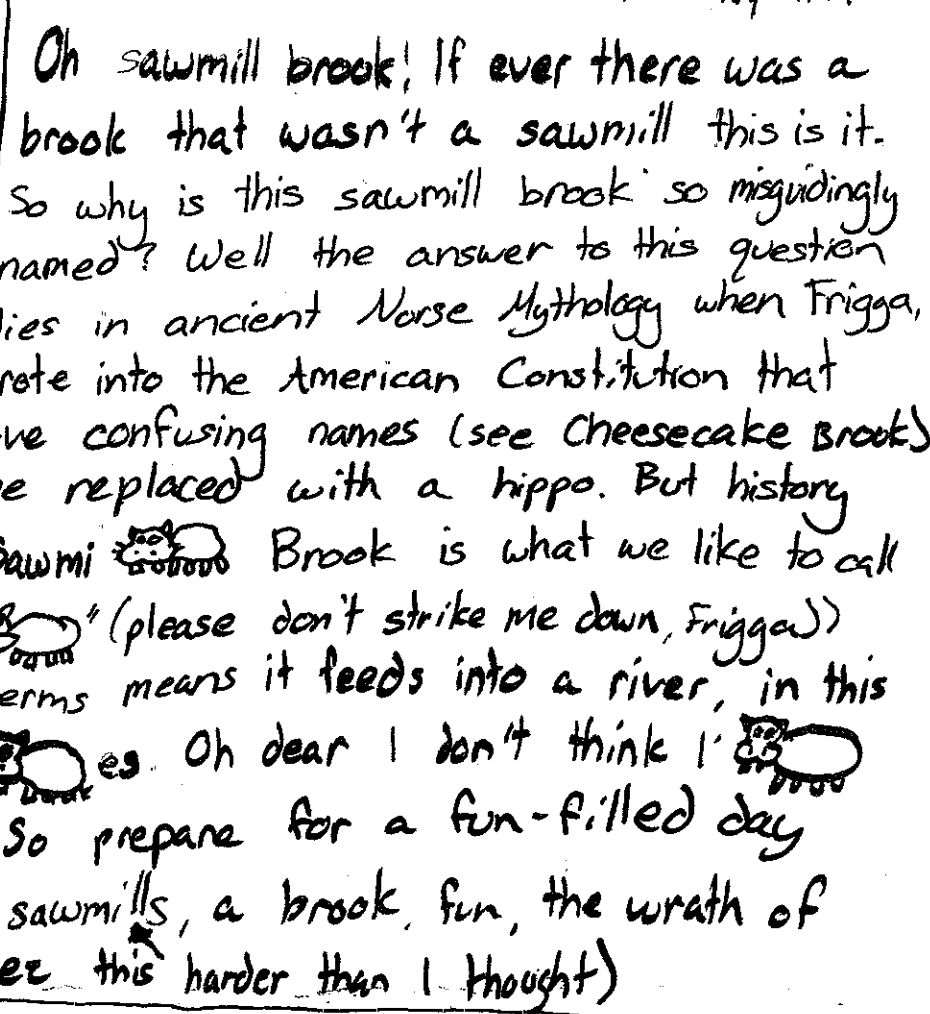 Oh sawmill brook! If ever there was a
brook that wasn't a sawmill this is it.
So why is this sawmill brook so misguidingly
named? Well the answer to this question
lies in ancient Norse Mythology when Frigga,
rote into the American Constitution that
ve confusing names (see Cheesecake Brook)
e replaced with a hippo. But history
Sawmi Brook is what we like to call
" (please don't strike me down, Frigga))
erms means it feeds into a river, in this
es. Oh dear I don't think I'
So prepare for a fun-filled day
sawmills, a brook, fun, the wrath of
this harder than I thought)